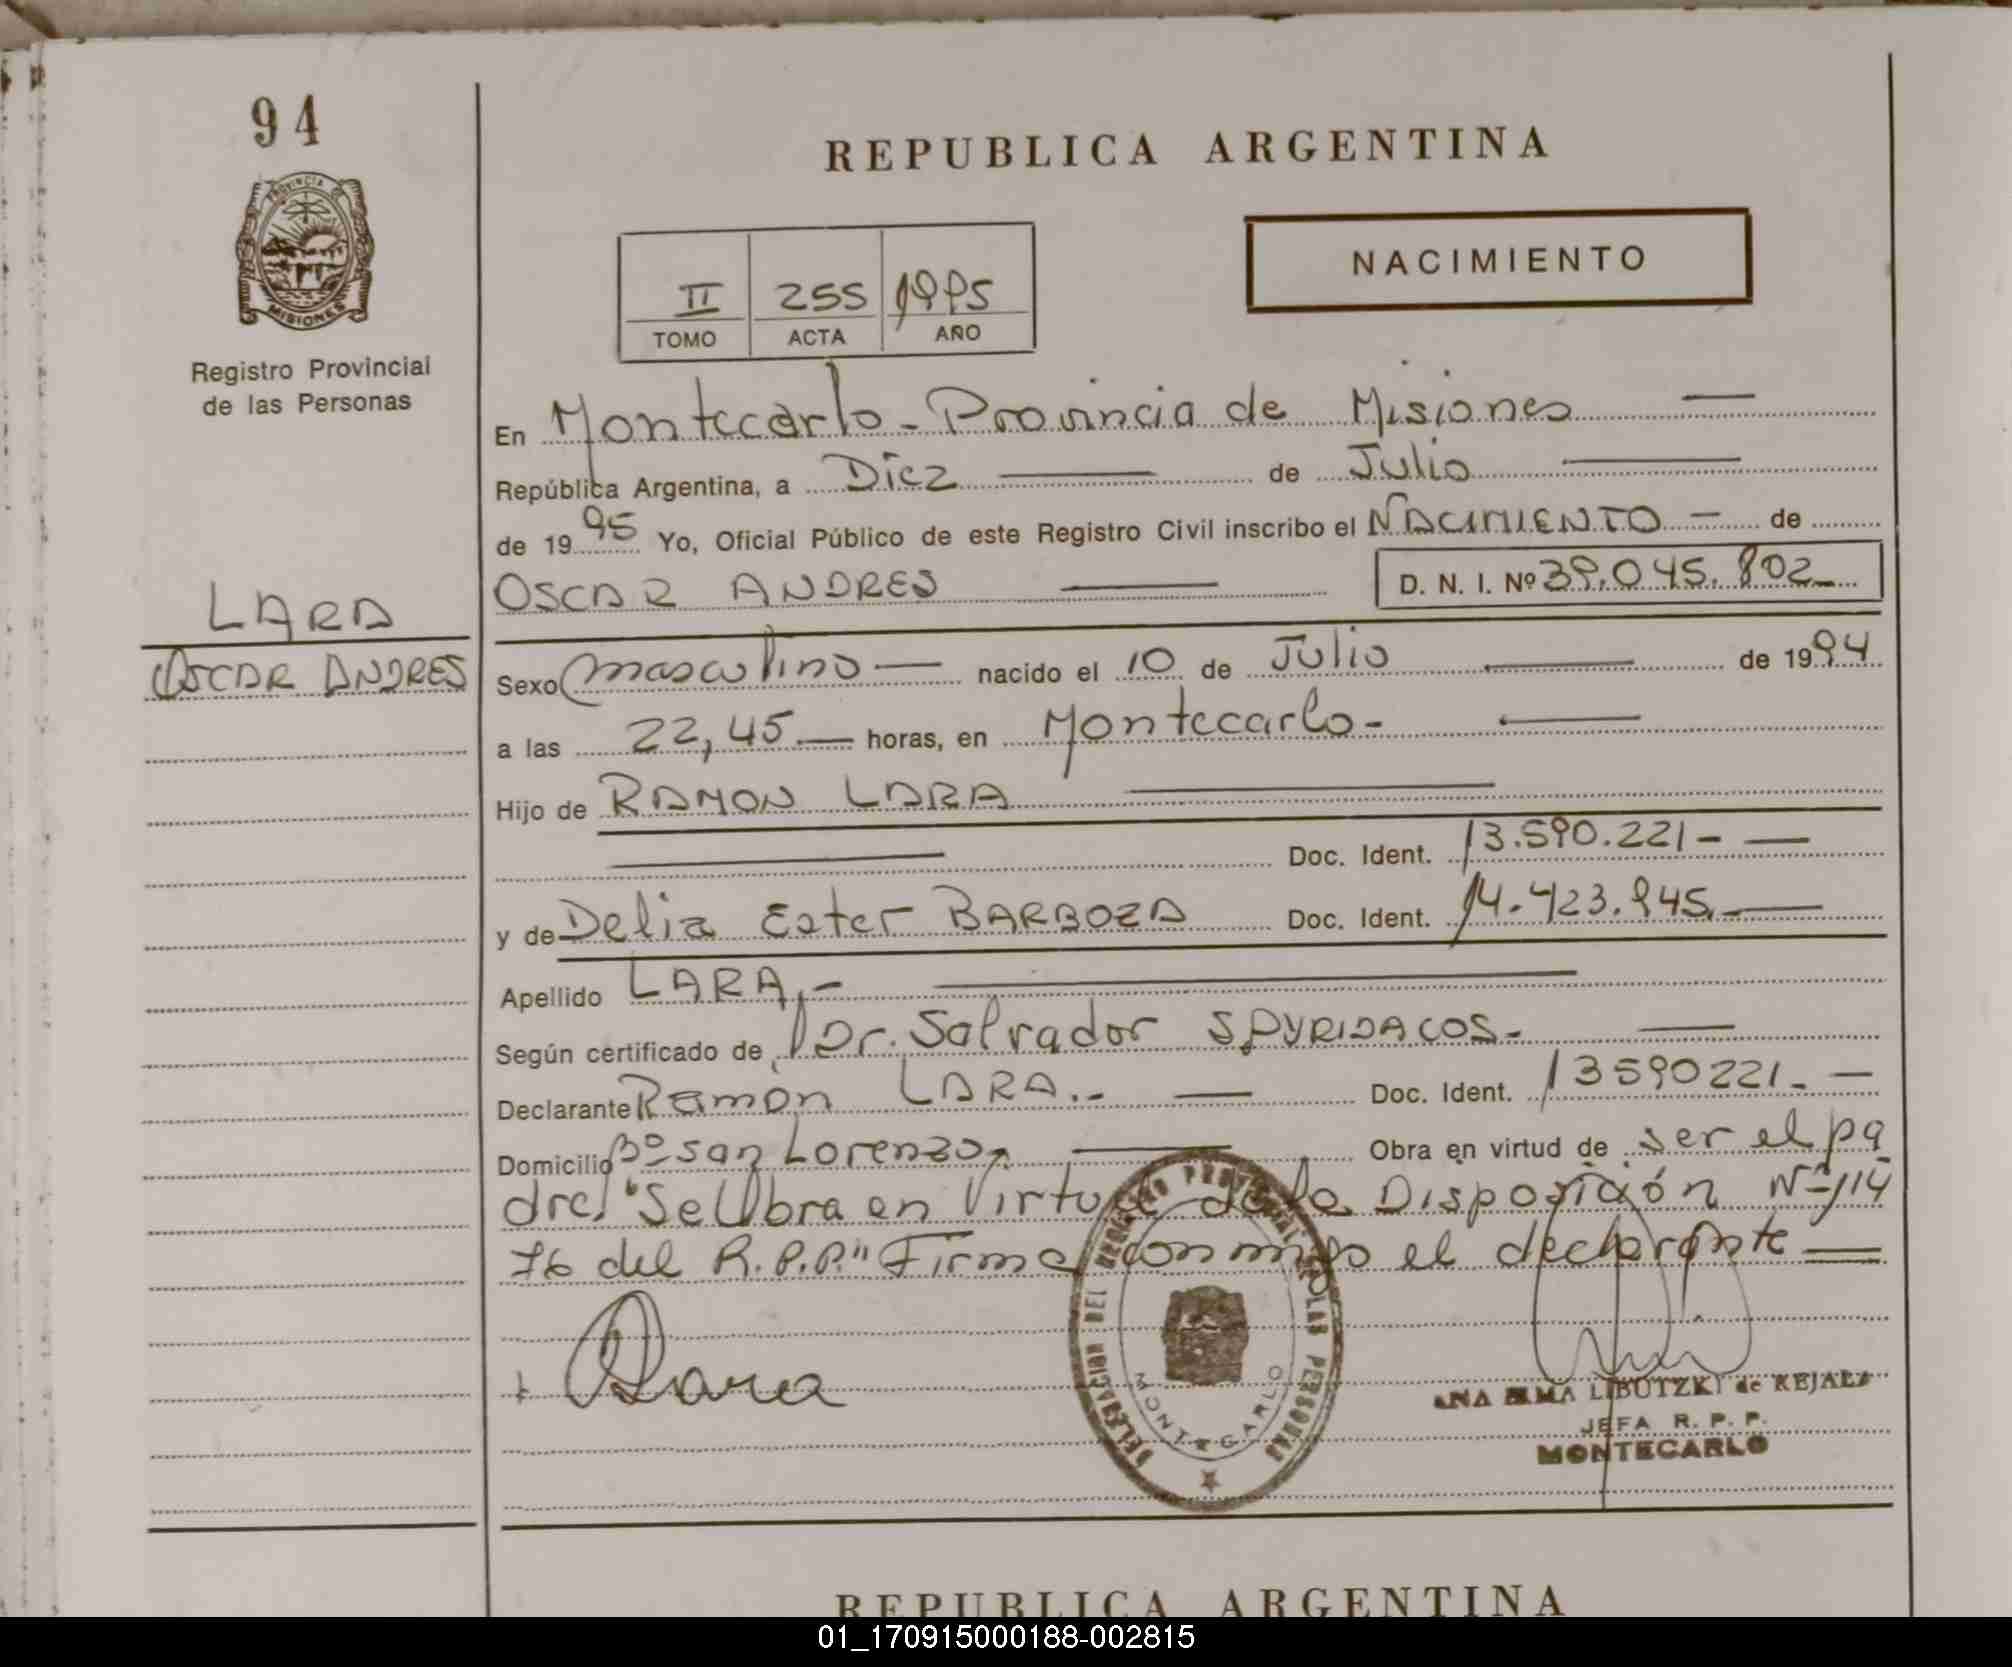 94
PROVINCIA DE
MISIONES
Registro Provincial
de las Personas
LARA
OSCAR ANDRES
REPUBLICA ARGENTINA
NACIMIENTO
II 255 1995
TOMO ACTA AÑO
En Montecarlo - Provincia de Misiones
República Argentina, a Diez de Julio
de 1995 Yo, Oficial Público de este Registro Civil inscribo el NACIMIENTO - de
OSCAR ANDRES D. N. I. Nº 39.045.802
Sexo masculino nacido el 10 de Julio de 1994
a las 22,45 horas, en Montecarlo-
Hijo de RAMON LARA
Doc. Ident. 13.590.221-
y de Delia Ester BARBOZA Doc. Ident. 14.423.945.-
Apellido LARA.-
Según certificado de Dr. Salvador SPYRIDACOS-
Declarante Ramón LARA.- Doc. Ident. 13590221.-
Domicilio Bº San Lorenzo, Obra en virtud de ser el pa
dre, "Se Obra en Virtud de la Disposición Nº 114
76 del R.P.P." Firma con migo el declarante
Lara
DELEGACION DEL REGISTRO PROVINCIAL DE LAS PERSONAS
MONTECARLO
ANA ELMA LIBUTZKI de REJALA
JEFA R. P. P.
MONTECARLO
REPUBLICA ARGENTINA
01_170915000188-002815